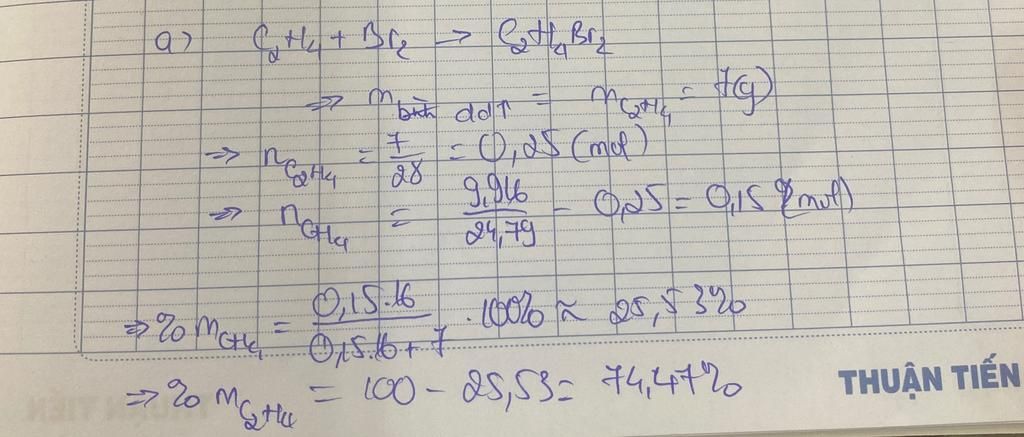 a) C₂H₄ + Br₂ → C₂H₄Br₂
⇒ m bình dd↑ = m C₂H₄ = 7(g)
⇒ n C₂H₄ = 7/28 = 0,25 (mol)
⇒ n CH₄ = 9,916/24,79 - 0,25 = 0,15 (mol)
⇒ % m CH₄ = 0,15.16/(0,15.16 + 7) . 100% ≈ 25,53%
⇒ % m C₂H₄ = 100 - 25,53 = 74,47%
THUẬN TIẾN